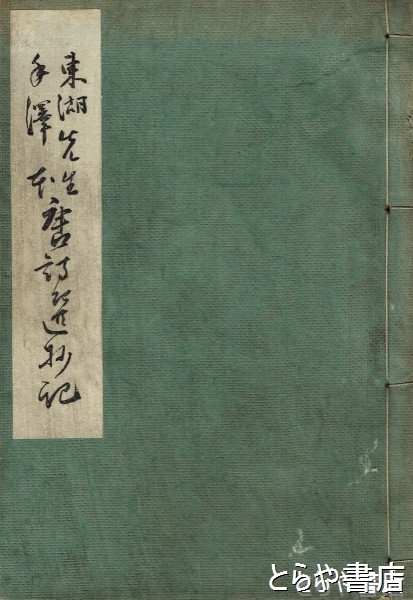 東湖先生
手澤本
唐詩選抄記
とらや書店